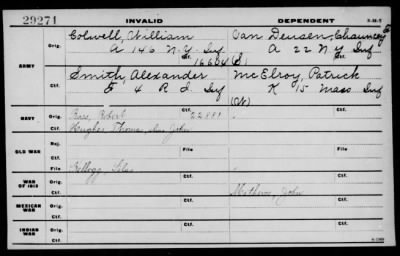 29271 INVALID DEPENDENT
ARMY
Orig. Colwell, William Van Deusen, Chauncey
A 146 N.Y. Inf A 22 N.Y. Inf
Ctf.
Smith, Alexander McElroy, Patrick
Orig. E 4 R I Inf K 15 Mass Inf
Ctf.
NAVY
Orig. Robert
Ctf. Hughes Thomas, alias John
OLD WAR
Rej. File File
Ctf.
WAR OF 1812
Orig. Kellogg, Silas
Ctf. Mathews, John
MEXICAN WAR
Orig.
Ctf.
INDIAN WAR
Orig.
Ctf.